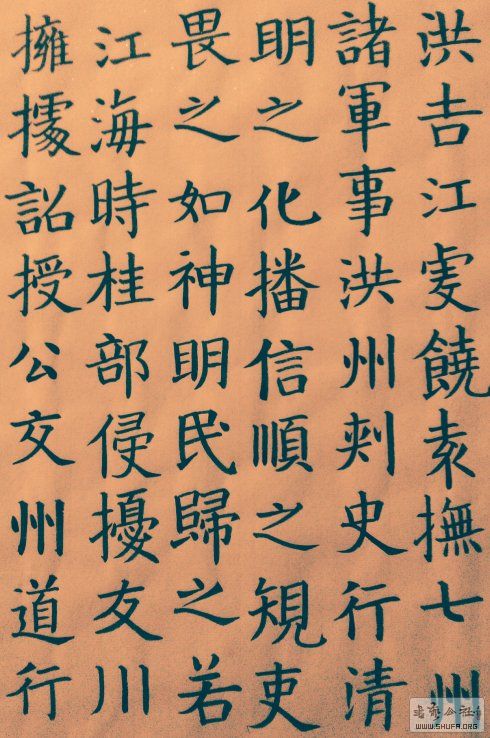 洪吉江虔饒袁撫七州
諸軍事洪州刺史行清
明之化播信順之規吏
畏之如神明民歸之若
江海時桂部侵擾友川
擁據詔授公交州道行
書法公社
WWW.SHUFA.ORG